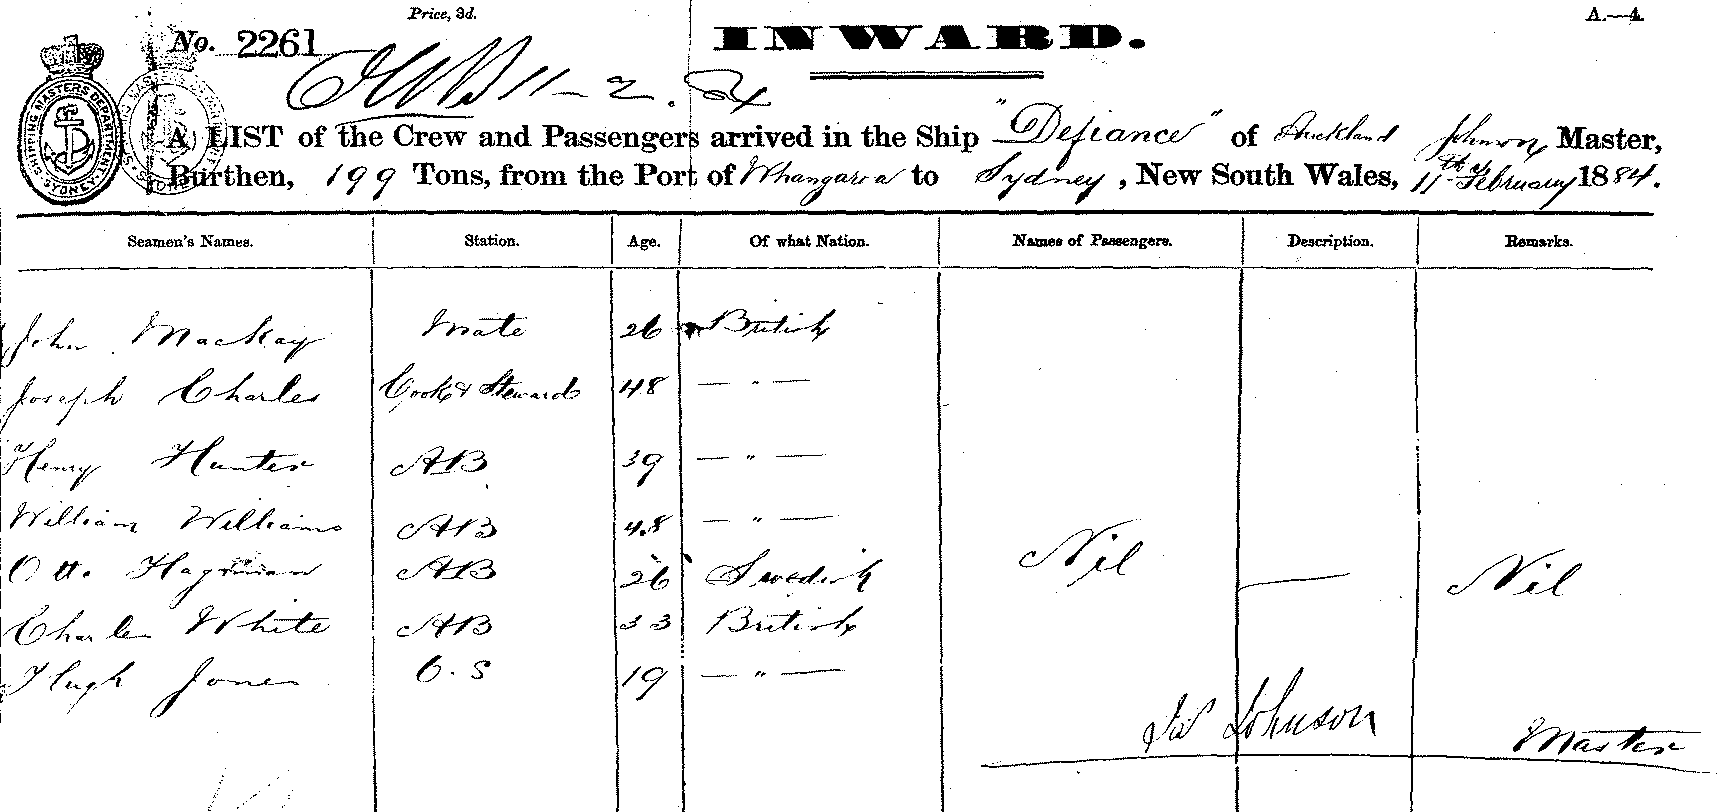 Price, 3d.
A.—4.
No. 2261
INWARD.
11-2.84
SHIPPING MASTERS DEPARTMENT SYDNEY
A LIST of the Crew and Passengers arrived in the Ship "Defiance" of Auckland Johnson Master,
Burthen, 199 Tons, from the Port of Whangaroa to Sydney, New South Wales, 11th February 1884.
Seamen's Names. Station. Age. Of what Nation. Names of Passengers. Description. Remarks.
John Mackay Mate 26 British
Joseph Charles Cook & Steward 48 — " —
Henry Hunter AB 39 — " —
William Williams AB 48 — " —
Otto Hagman AB 26 Swedish Nil — Nil
Charles White AB 33 British
Hugh Jones O.S 19 — " —
Johnson Master